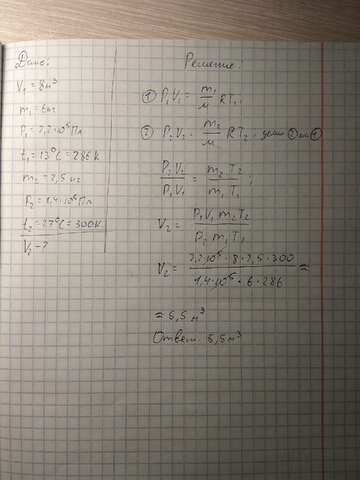 Дано:
V₁ = 8м³
m₁ = 6кг
P₁ = 2,2·10⁵Па
t₁ = 13°C = 286К
m₂ = 7,5кг
P₂ = 1,4·10⁵Па
t₂ = 27°C = 300К
V₂ - ?
Решение:
① P₁V₁ = m₁/μ RT₁;
② P₂V₂ = m₂/μ RT₂; делим ② на ①
P₂V₂/P₁V₁ = m₂T₂/m₁T₁;
V₂ = P₁V₁m₂T₂/P₂m₁T₁
V₂ = 2,2·10⁵·8·7,5·300/1,4·10⁵·6·286 =
= 5,5м³
Ответ: 5,5м³